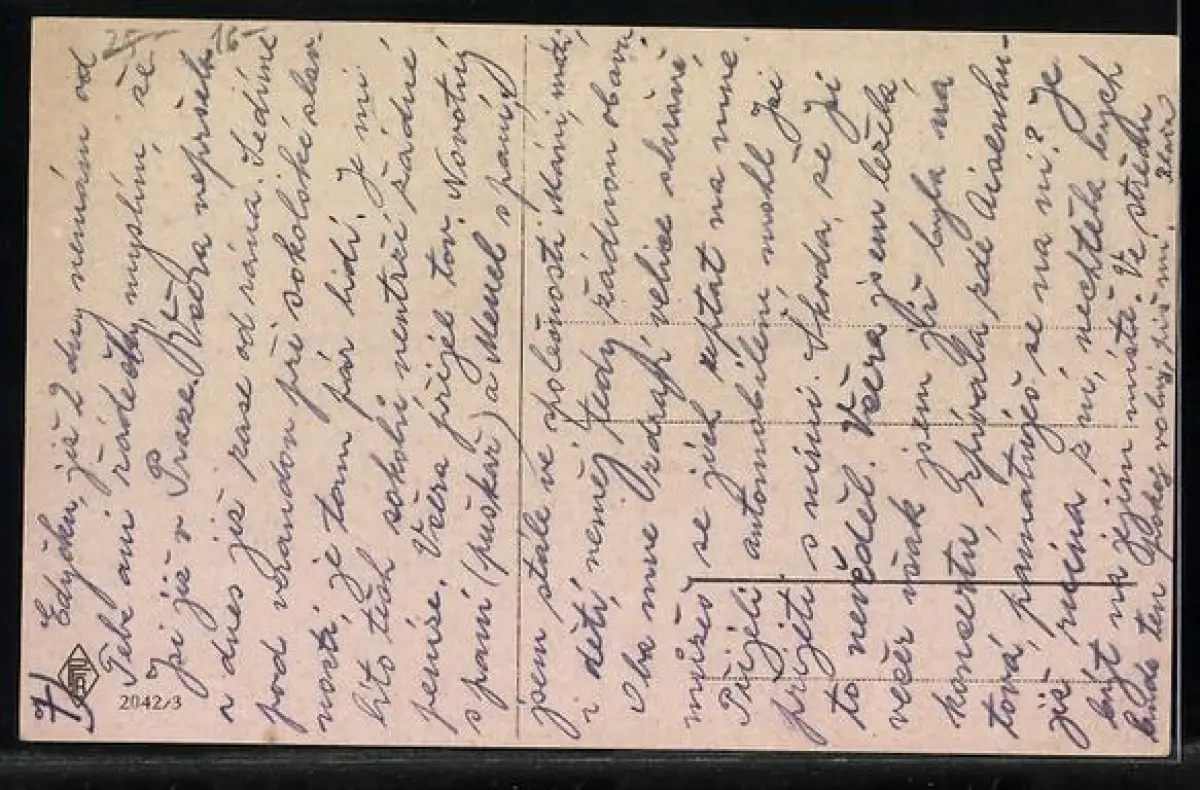 7/
25 - 15
Edyčku, již 2 dny nemám od
Tebe ani řádečky, myslím, že
Jsi již v Praze. Včera nepršelo
a dnes již zase od rána. Sedíme
pod verandou při sokolské slav-
nosti, je tam pár lidí. Je mi
líto těch sokolů neutrží žádné
peníze. Včera přijel ton Novotný
s paní (puškař) a Mencl s paní,
jsem stále ve společnosti Máni, má
i děti, neměj tedy žádnou obavu
Oba mne Ozdravují velice shráně,
můžeš se jich zeptat na mne.
Přijeli automobilem, mohl Jsi
přijeti s nimi. Škoda, že Jsi
to nevěděl. Včera jsem ležela,
večer však jsem již byla na
koncertu, zpívala zde Aisenhu-
tová, pamatuješ se na ni? Je
již ruina z ní, nechtěla bych
být na jejím místě. Ve středu
bude ten pokoj volný, piš mi.
2042/3